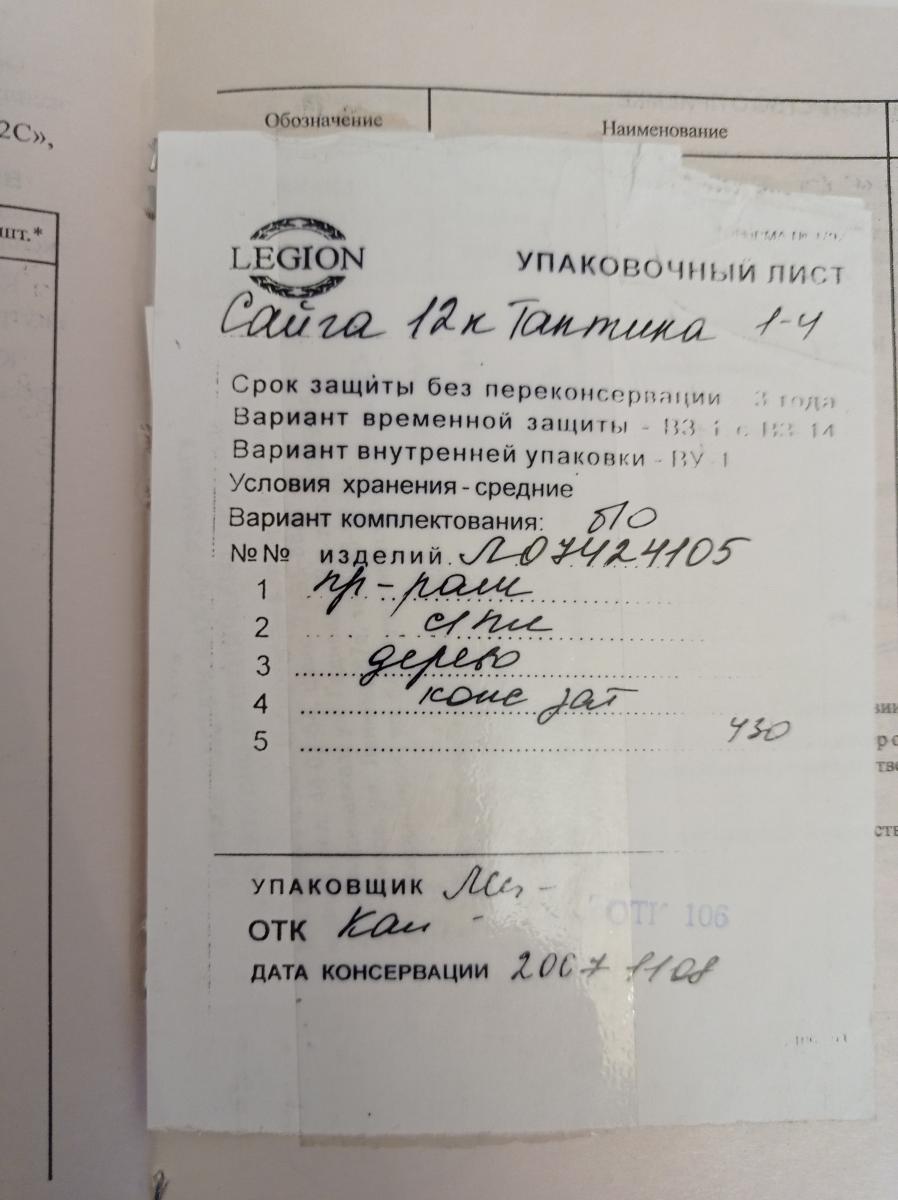 2С»,
шт.*
Обозначение
Наименование
LEGION
УПАКОВОЧНЫЙ ЛИСТ
Сайга 12к Тактика 1-4
Срок защиты без переконсервации 3 года
Вариант временной защиты - ВЗ-1 с ВЗ-14
Вариант внутренней упаковки - ВУ-1
Условия хранения - средние
Вариант комплектования:
№№ изделий. Л07424105
1 пр-рам
2
3 дерево
4 конс зат
5
430
УПАКОВЩИК
ОТК Кал
ОТК 106
ДАТА КОНСЕРВАЦИИ 2007 11 08